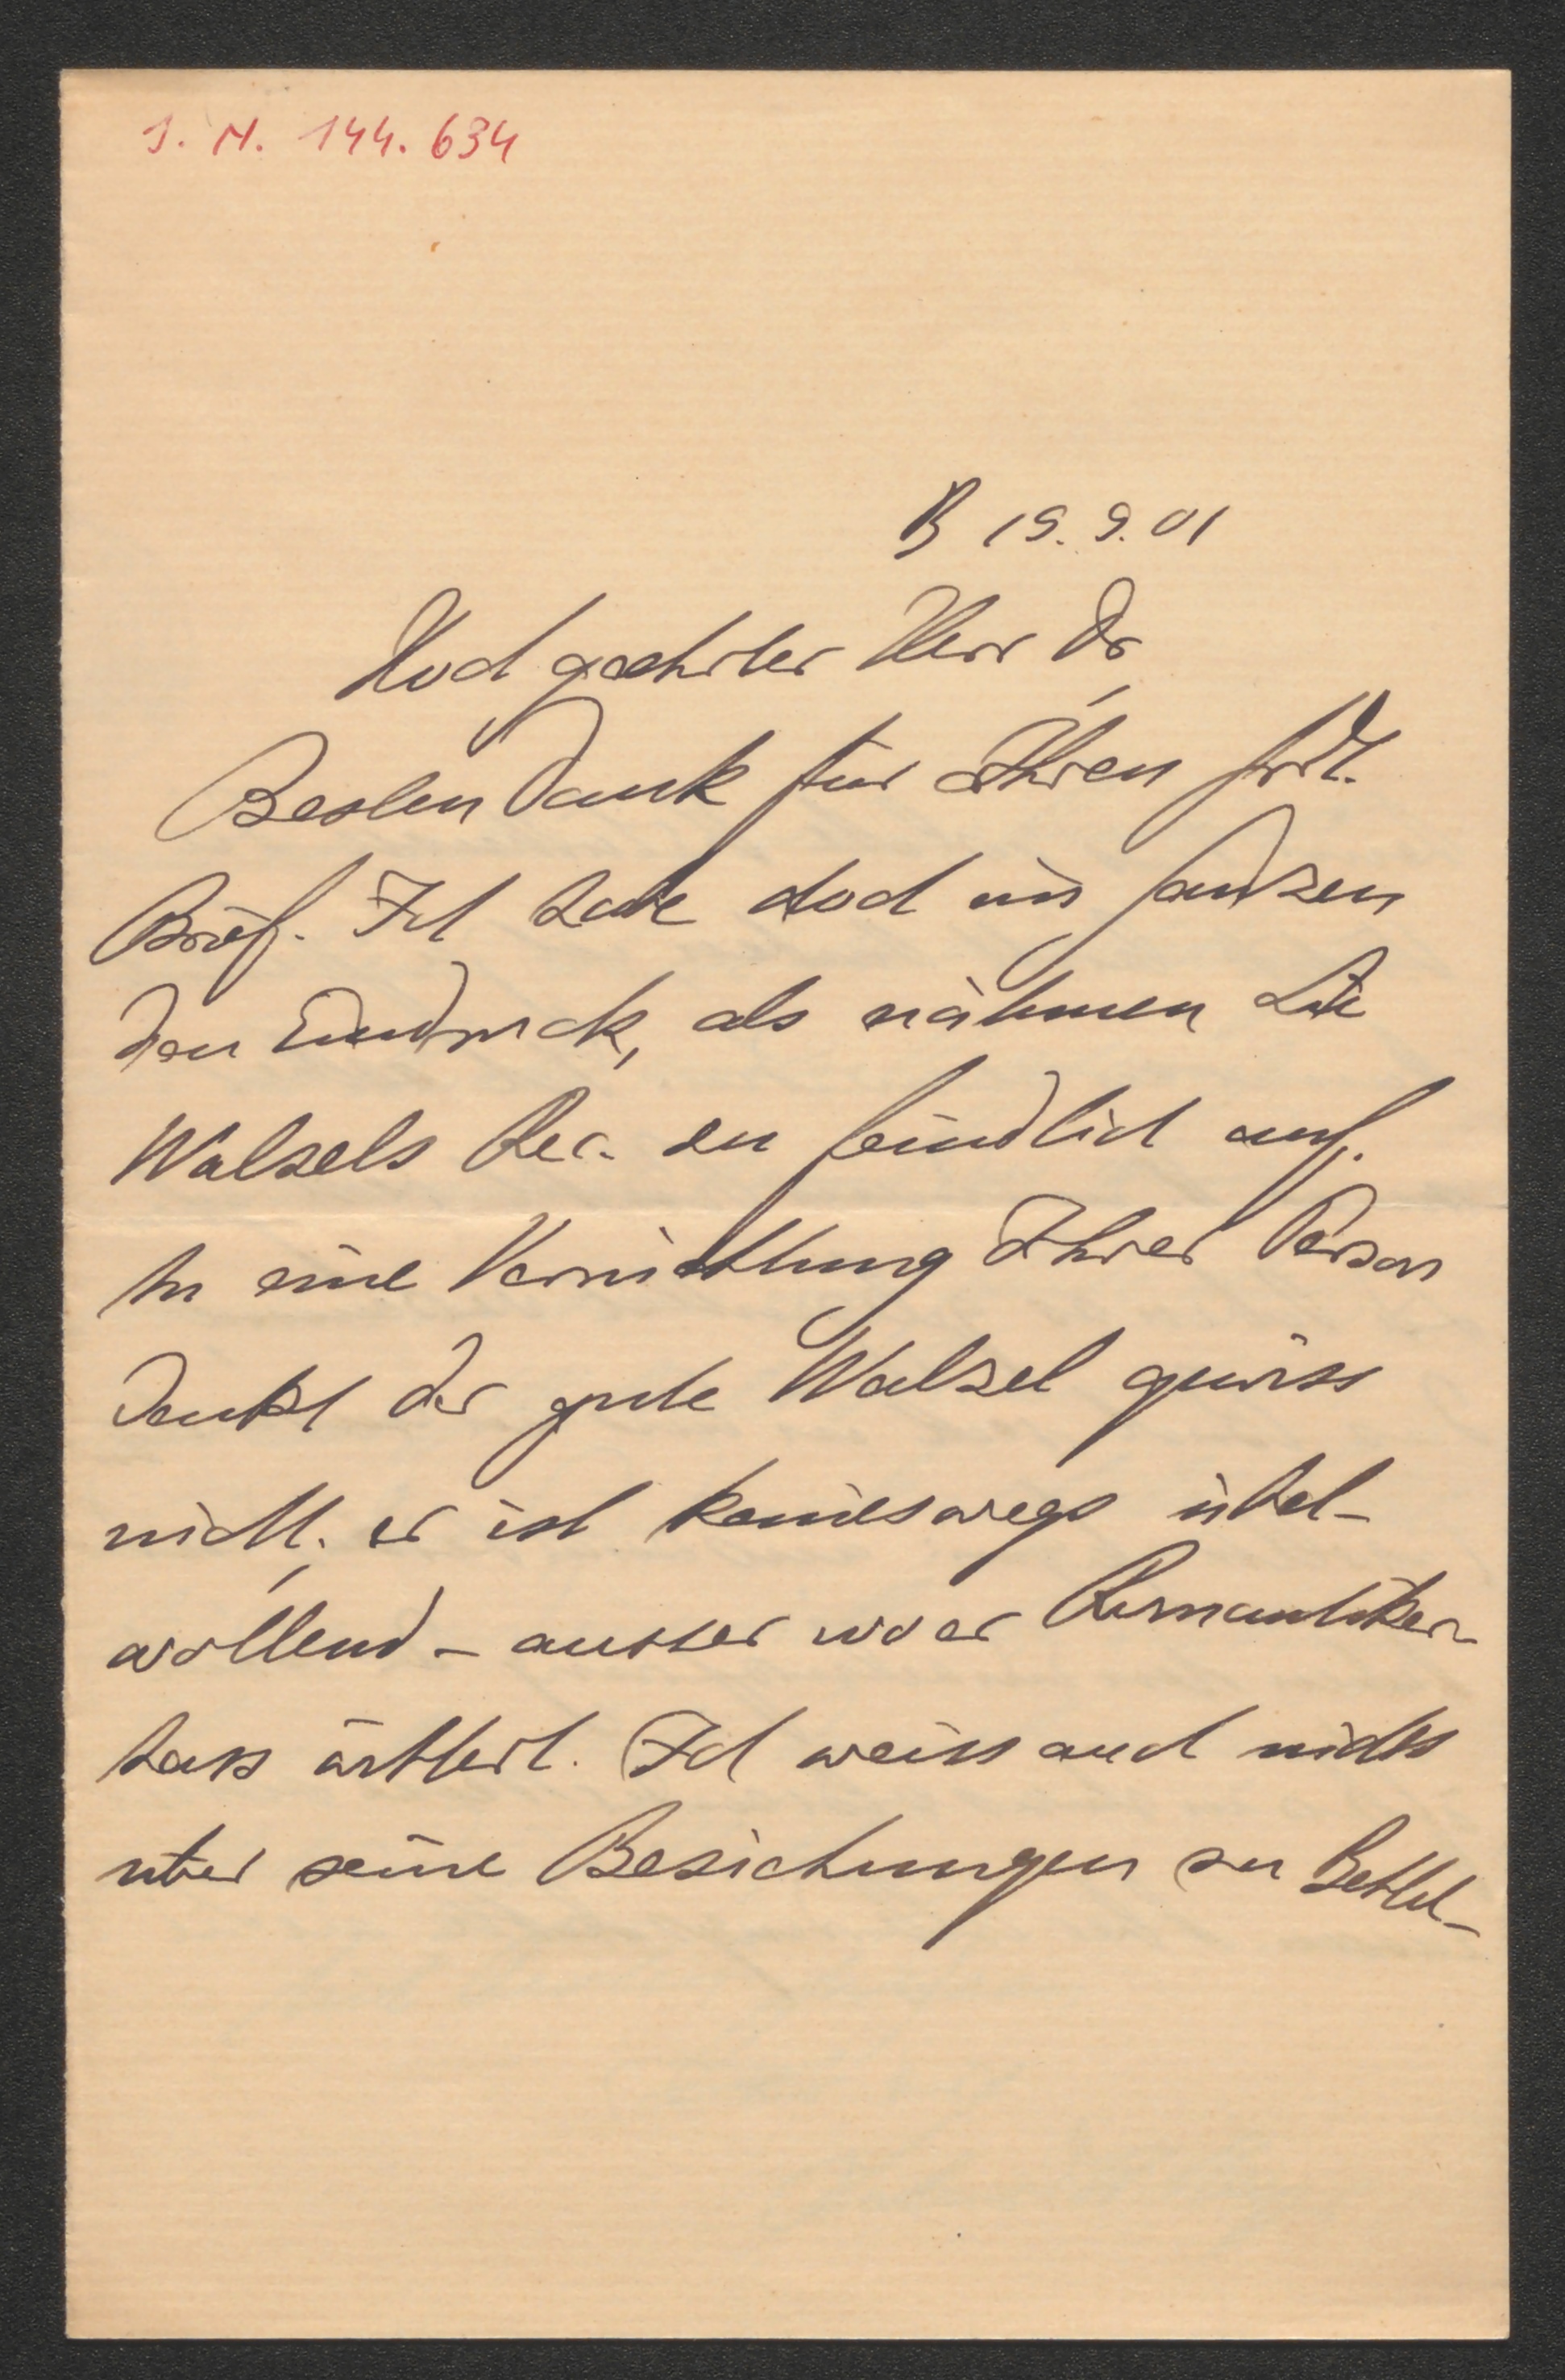 I. N. 144.634
B 19. 9. 01
Hochgeehrter Herr Dr,
Besten Dank für Ihren frdl.
Brief. Ich habe doch im ganzen
den Eindruck, als nähmen Sie
Walzels Rec. zu feindlich auf.
An eine Vernichtung Ihrer Person
denkt der gute Walzel gewiss
nicht; er ist keineswegs übel-
wollend – ausser wo er Romantiker-
hass wittert. Ich weiss auch nichts
über seine Beziehungen zu Bettel-